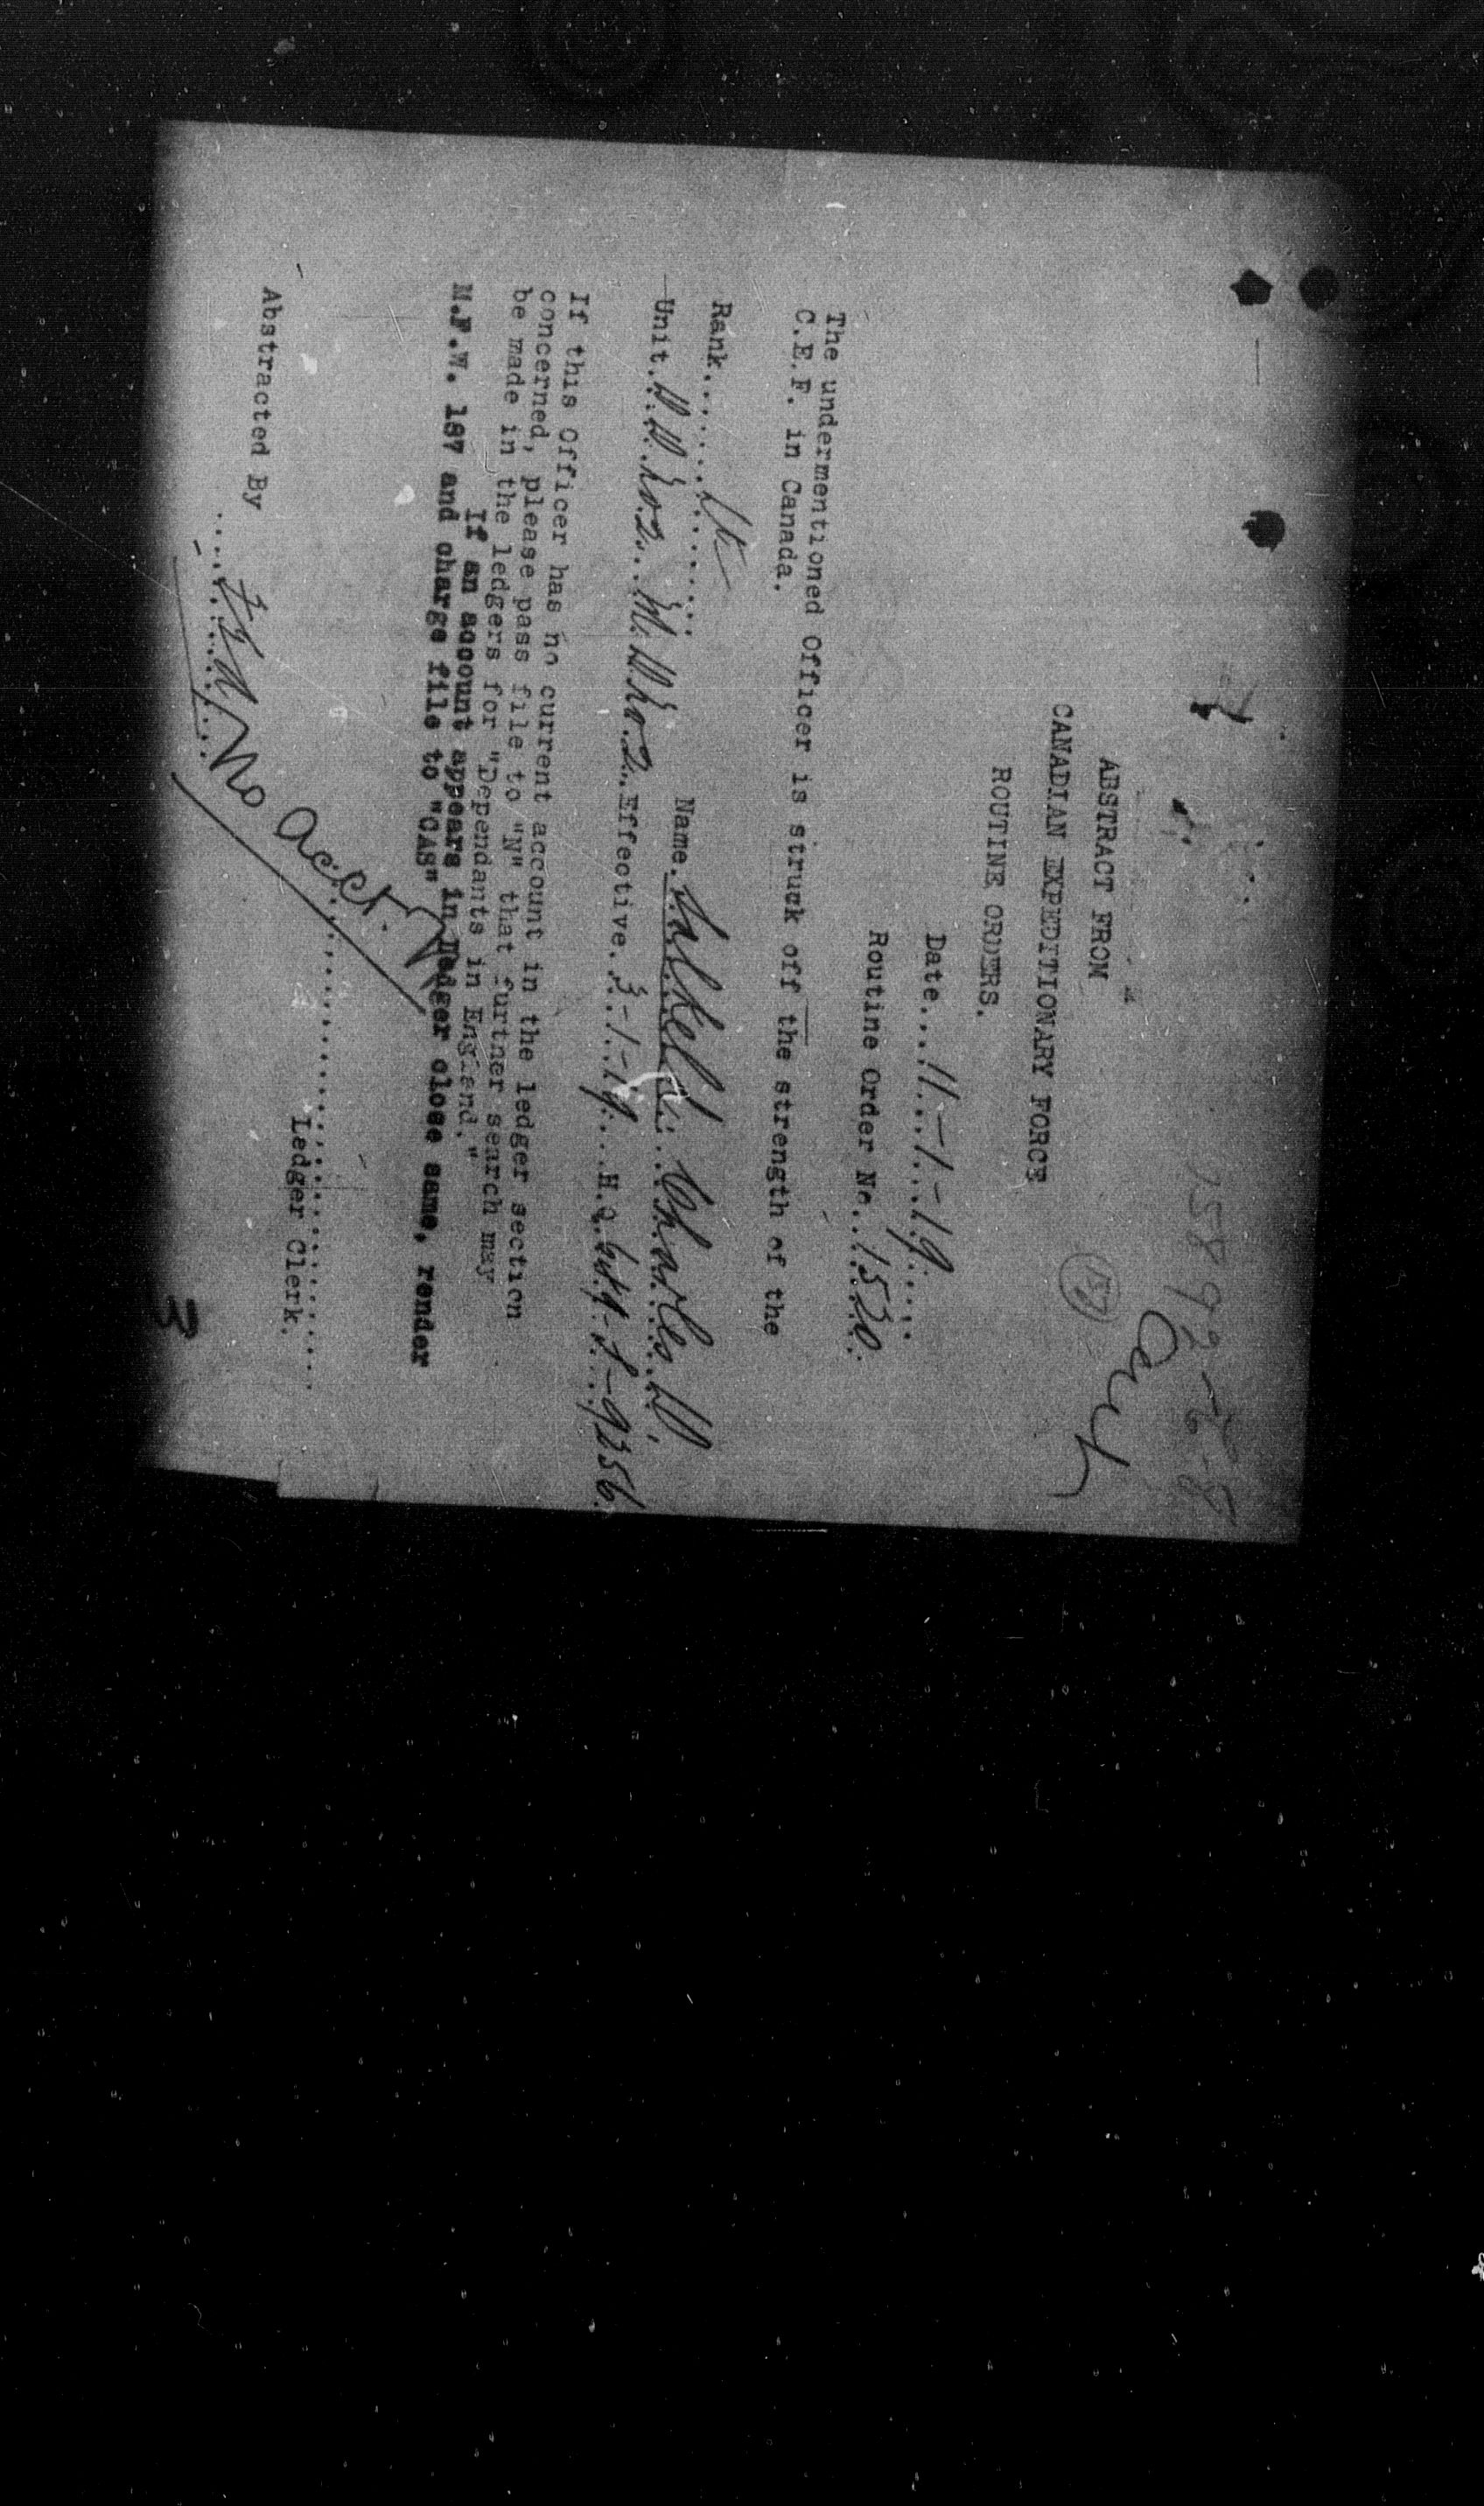 15892-C-8
Can
157
ABSTRACT FROM
CANADIAN EXPEDITIONARY FORCE
ROUTINE ORDERS.
Date...11-1-19.....
Routine Order No..1520.
The undermentioned Officer is struck off the strength of the
C.E.F. in Canada.
Rank.......Lt........ Name.Salkeld...Charles D.
Unit.D.D.No.2..M.D.No.2..Effective..3-1-19...H.Q.
If this Officer has no current account in the ledger section
concerned, please pass file to "N" that further search may
be made in the ledgers for "Dependants in England."
If an account appears in ledger close same, render
M.F.W. 187 and charge file to "CAS"
No acct.
Ledger Clerk.
Abstracted By
3